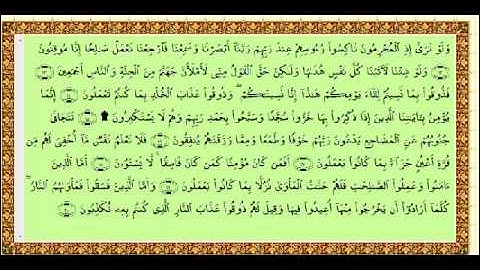 وَلَوْ تَرَىٰٓ إِذِ ٱلْمُجْرِمُونَ نَاكِسُوا۟ رُءُوسِهِمْ عِندَ رَبِّهِمْ رَبَّنَآ أَبْصَرْنَا وَسَمِعْنَا فَٱرْجِعْنَا نَعْمَلْ صَٰلِحًا إِنَّا مُوقِنُونَ
وَلَوْ شِئْنَا لَءَاتَيْنَا كُلَّ نَفْسٍ هُدَىٰهَا وَلَٰكِنْ حَقَّ ٱلْقَوْلُ مِنِّى لَأَمْلَأَنَّ جَهَنَّمَ مِنَ ٱلْجِنَّةِ وَٱلنَّاسِ أَجْمَعِينَ
فَذُوقُوا۟ بِمَا نَسِيتُمْ لِقَآءَ يَوْمِكُمْ هَٰذَآ إِنَّا نَسِينَٰكُمْ ۖ وَذُوقُوا۟ عَذَابَ ٱلْخُلْدِ بِمَا كُنتُمْ تَعْمَلُونَ إِنَّمَا
يُؤْمِنُ بِـَٔايَٰتِنَا ٱلَّذِينَ إِذَا ذُكِّرُوا۟ بِهَا خَرُّوا۟ سُجَّدًا وَسَبَّحُوا۟ بِحَمْدِ رَبِّهِمْ وَهُمْ لَا يَسْتَكْبِرُونَ ۩ تَتَجَافَىٰ
جُنُوبُهُمْ عَنِ ٱلْمَضَاجِعِ يَدْعُونَ رَبَّهُمْ خَوْفًا وَطَمَعًا وَمِمَّا رَزَقْنَٰهُمْ يُنفِقُونَ فَلَا تَعْلَمُ نَفْسٌ مَّآ أُخْفِىَ لَهُم مِّن
قُرَّةِ أَعْيُنٍ جَزَآءًۢ بِمَا كَانُوا۟ يَعْمَلُونَ أَفَمَن كَانَ مُؤْمِنًا كَمَن كَانَ فَاسِقًا ۚ لَّا يَسْتَوُۥنَ أَمَّا ٱلَّذِينَ
ءَامَنُوا۟ وَعَمِلُوا۟ ٱلصَّٰلِحَٰتِ فَلَهُمْ جَنَّٰتُ ٱلْمَأْوَىٰ نُزُلًۢا بِمَا كَانُوا۟ يَعْمَلُونَ وَأَمَّا ٱلَّذِينَ فَسَقُوا۟ فَمَأْوَىٰهُمُ ٱلنَّارُ ۖ
كُلَّمَآ أَرَادُوٓا۟ أَن يَخْرُجُوا۟ مِنْهَآ أُعِيدُوا۟ فِيهَا وَقِيلَ لَهُمْ ذُوقُوا۟ عَذَابَ ٱلنَّارِ ٱلَّذِى كُنتُم بِهِۦ تُكَذِّبُونَ